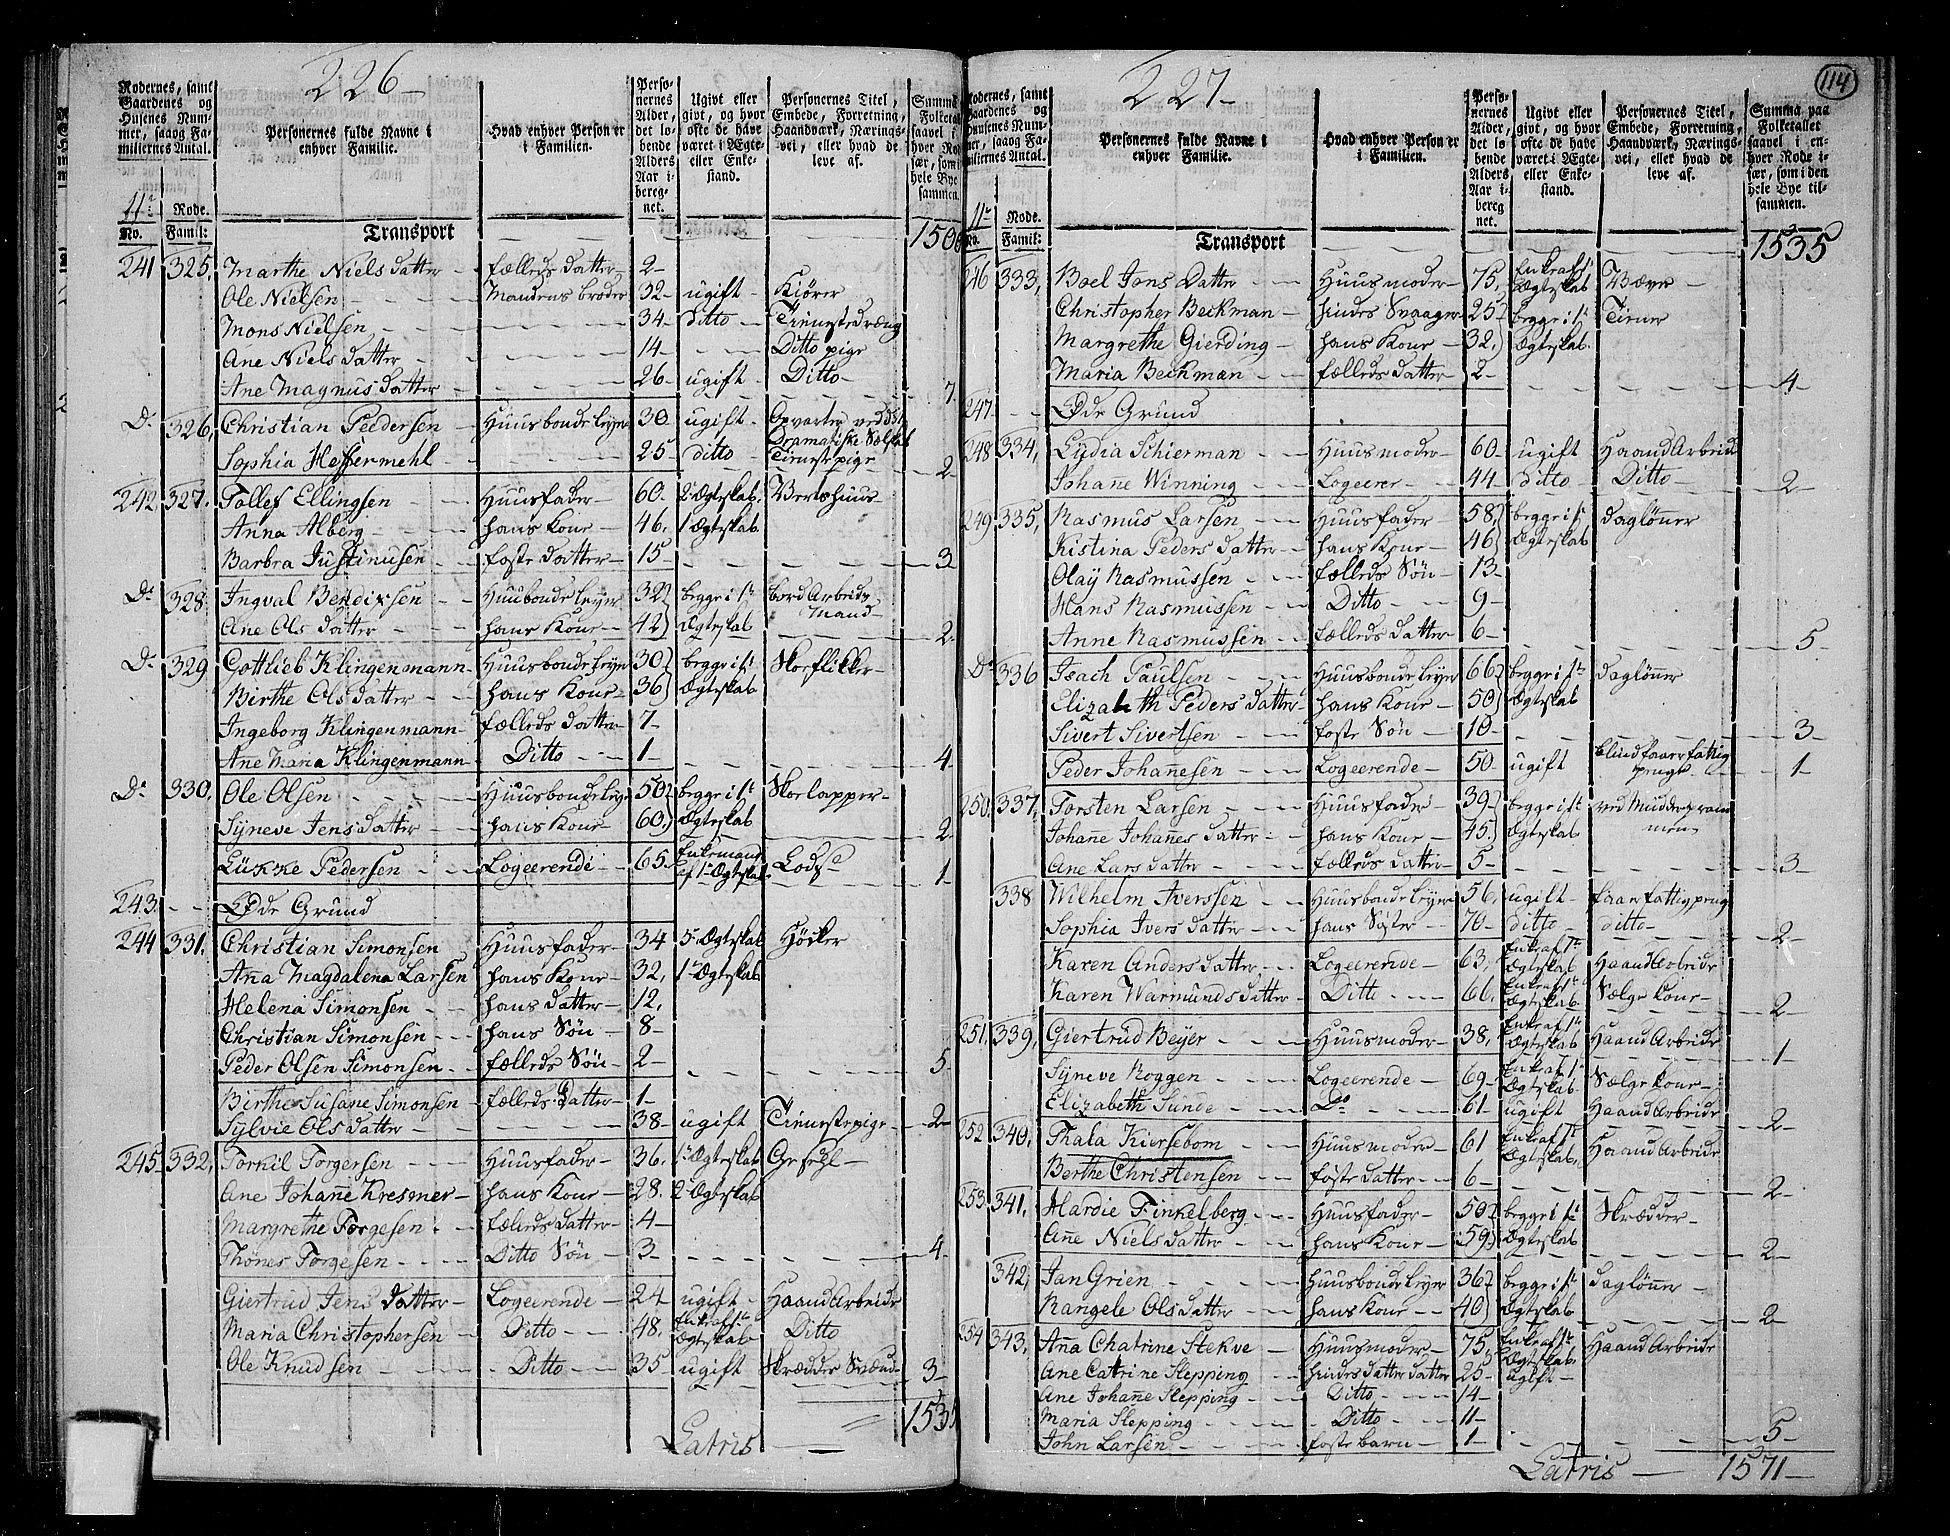 226
Rodernes, samt Gaardenes og Husenes Nummer, saaog Familiernes Antal.
Personernes fulde Navne i enhver Familie.
Hvad enhver Person er i Familien.
Personernes Alder, det løbende Alders Aar iberegnet.
Ugivt eller givt, og hvor ofte de have været i Ægte- eller Enkestand.
Personernes Titel, Embede, Forretning, Haandværk, Næringsvei, eller hvad de leve af.
Summa Folketal saavel i hver Rode især, som i hele Bye sammen.
11te Rode.
No. Famil:
Transport 150
241 325, Marthe Nielsdatter fælleds datter 2
Ole Nielsen Mandens broder 32 ugift Kiører
Mons Nielsen 34 ditto Tienestedræng
Ane Nielsdatter 14 Ditto pige
Ane Magnusdatter 26 ugift Ditto 7
Do 326, Christian Pedersen Huusbondeleyer 30 ugift Opvarter ved det Dramatiske Sælskab
Sophia Heffermehl 25 ditto Tienestepige 2
242 327. Tollef Ellingsen Huusfader 60 2 Ægteskab Vertshuus
Anna Alberg hans Kone 46 1 Ægteskab
Barbra Justinusen foste datter 15 3
Do 328 Ingval Bendixsen Huusbondeleyer 32 begge i 1te bord Arbeids Mand
Ane Olsdatter hans Kone 42 Ægteskab 2
Do 329 Gottlieb Klingenmann Huusbondeleyer 30 begge i 1te Skoeflikker
Birthe Olsdatter hans Kone 36 Ægteskab
Ingeborg Klingenmann fælleds datter 7
Ane Maria Klingenmann Ditto 1 4
Do 330, Ole Olsen Huusbondeleyer 50 begge i 1te Skoelapper
Syneve Jensdatter hans Kone 60 Ægteskab 2
Lükke Pedersen Logeerende 65 Enkemand ef 1te Ægteskab Lods 1
243. Øde Grund
244 331. Christian Simonsen Huusfader 34 5 Ægteskab Høcker
Anna Magdalena Larsen hans Kone 32, 1 Ægteskab
Helena Simonsen hans datter 12,
Christian Simonsen hans Søn 8
Peder Olsen Simonsen fælleds Søn 2 5
Birthe Susane Simonsen fælleds datter 1
Sylvie Olsdatter 38 ugift Tienestepige 2
245 332, Torkil Torgersen Huusfader 36. 1 Ægteskab Gesehl
Ane Johañe Kresmer hans Kone 28. 2 Ægteskab
Margrethe Torgesen fælleds datter 4
Thönes Torgesen Ditto Søn 3 4
Giertrud Jens datter Logeerende 24 ugift Haand Arbeide
Maria Christophersen Ditto 48. Enke af 1te Ægteskab Ditto
Ole Knudsen Ditto 35 ugift Skrædder Svænd 3
Latris 153
227
114
Rodernes, samt Gaardenes og Husenes Nummer, saaog Familiernes Antal.
Personernes fulde Navne i enhver Familie.
Hvad enhver Person er i Familien.
Personernes Alder, det løbende Alders Aar iberegnet.
Ugivt eller givt, og hvor ofte de have været i Ægte- eller Enkestand.
Personernes Titel, Embede, Forretning, Haandværk, Næringsvei, eller hvad de leve af.
Summa paa Folketallet saavel i enhver Rode især, som i den hele Bye tilsammen.
11te Rode.
No. Famil:
Transport 1535
246 333, Boel Jons Datter Huusmoder 75, Enke af 1te Ægteskab Væver
Christopher Beckman hindes Svoager 25 begge i 1te Tiener
Margrethe Gierding hans Kone 32 Ægteskab
Maria Beckman fælleds datter 2 4
247 Øde Grund
248 334, Lydia Schierman Huusmoder 60 ugift Haand Arbeid
Johañe Winning Logerer 44 ditto Ditto 2
249 335, Rasmus Larsen Huusfader 58 begge i 1te daglönner
Kistina Peders datter hans Kone 46 Ægteskab
Olaÿ Rasmussen fælleds Søn 13
Hans Rasmussen Ditto 9
Anne Rasmussen fælleds datter 6 5
Do 336 Isach Paulsen Huusbondeleyer 66 begge i 1te daglönner
Elizabeth Peders datter hans Kone 50 Ægteskab
Sivert Sivertsen foste Søn 10 3
Peder Johañesen Logeerende 50 ugift blind faaer fattig penge 1
250 337, Torsten Larsen Huusfader 39 begge i 1te ved Mudderprammen
Johañe Johañes datter hans Kone 45 Ægteskab
Ane Larsdatter fælleds datter 5 3
338 Wilhelm Iverssen Huusbondeleyer 56, ugift faar fattigpeng
Sophia Ivers datter hans Söster 70 ditto ditto 2
Karen Andersdatter Logeerende 63, Enke af 1te Ægteskab Haand Arbeide
Karen Warmundsdatter Ditto 66. Enke af 1te Ægteskab Sælge Kone 2
251. 339, Giertrud Beyer Huusmoder 38, Enke af 1te Ægteskab Haand Arbeide 1
Syneve Roggen Logeerende 69 Enke af 1te Ægteskab Sælge Kone
Elizabeth Sunde Do 61 ugift Haand Arbeide 2
252 340. Thala Kiersebom Huusmoder 61 Enke af 1te Ægteskab, Haand Arbeide
Berthe Christensen foste datter 6 2
253 341, Hardie Finkelberg Huusfader 50 begge i 1te Skrædder
Añe Nielsdatter hans Kone 59 Ægteskab 2
342, Jan Grien Huusbondeleyer 36 begge i 1te daglönner
Rangele Olsdatter hans Kone 40 Ægteskab 2
254 343, Aña Chatrine Stekve Huusmoder 75, Enke af 1te Ægteskab Haand Arbeide
Ane Catrine Slepping hindes datter datter 25 ugift
Ane Johañe Slepping Ditto 14
Maria Slepping Ditto 11
John Larsen foste barn 1 5
Latris 1571